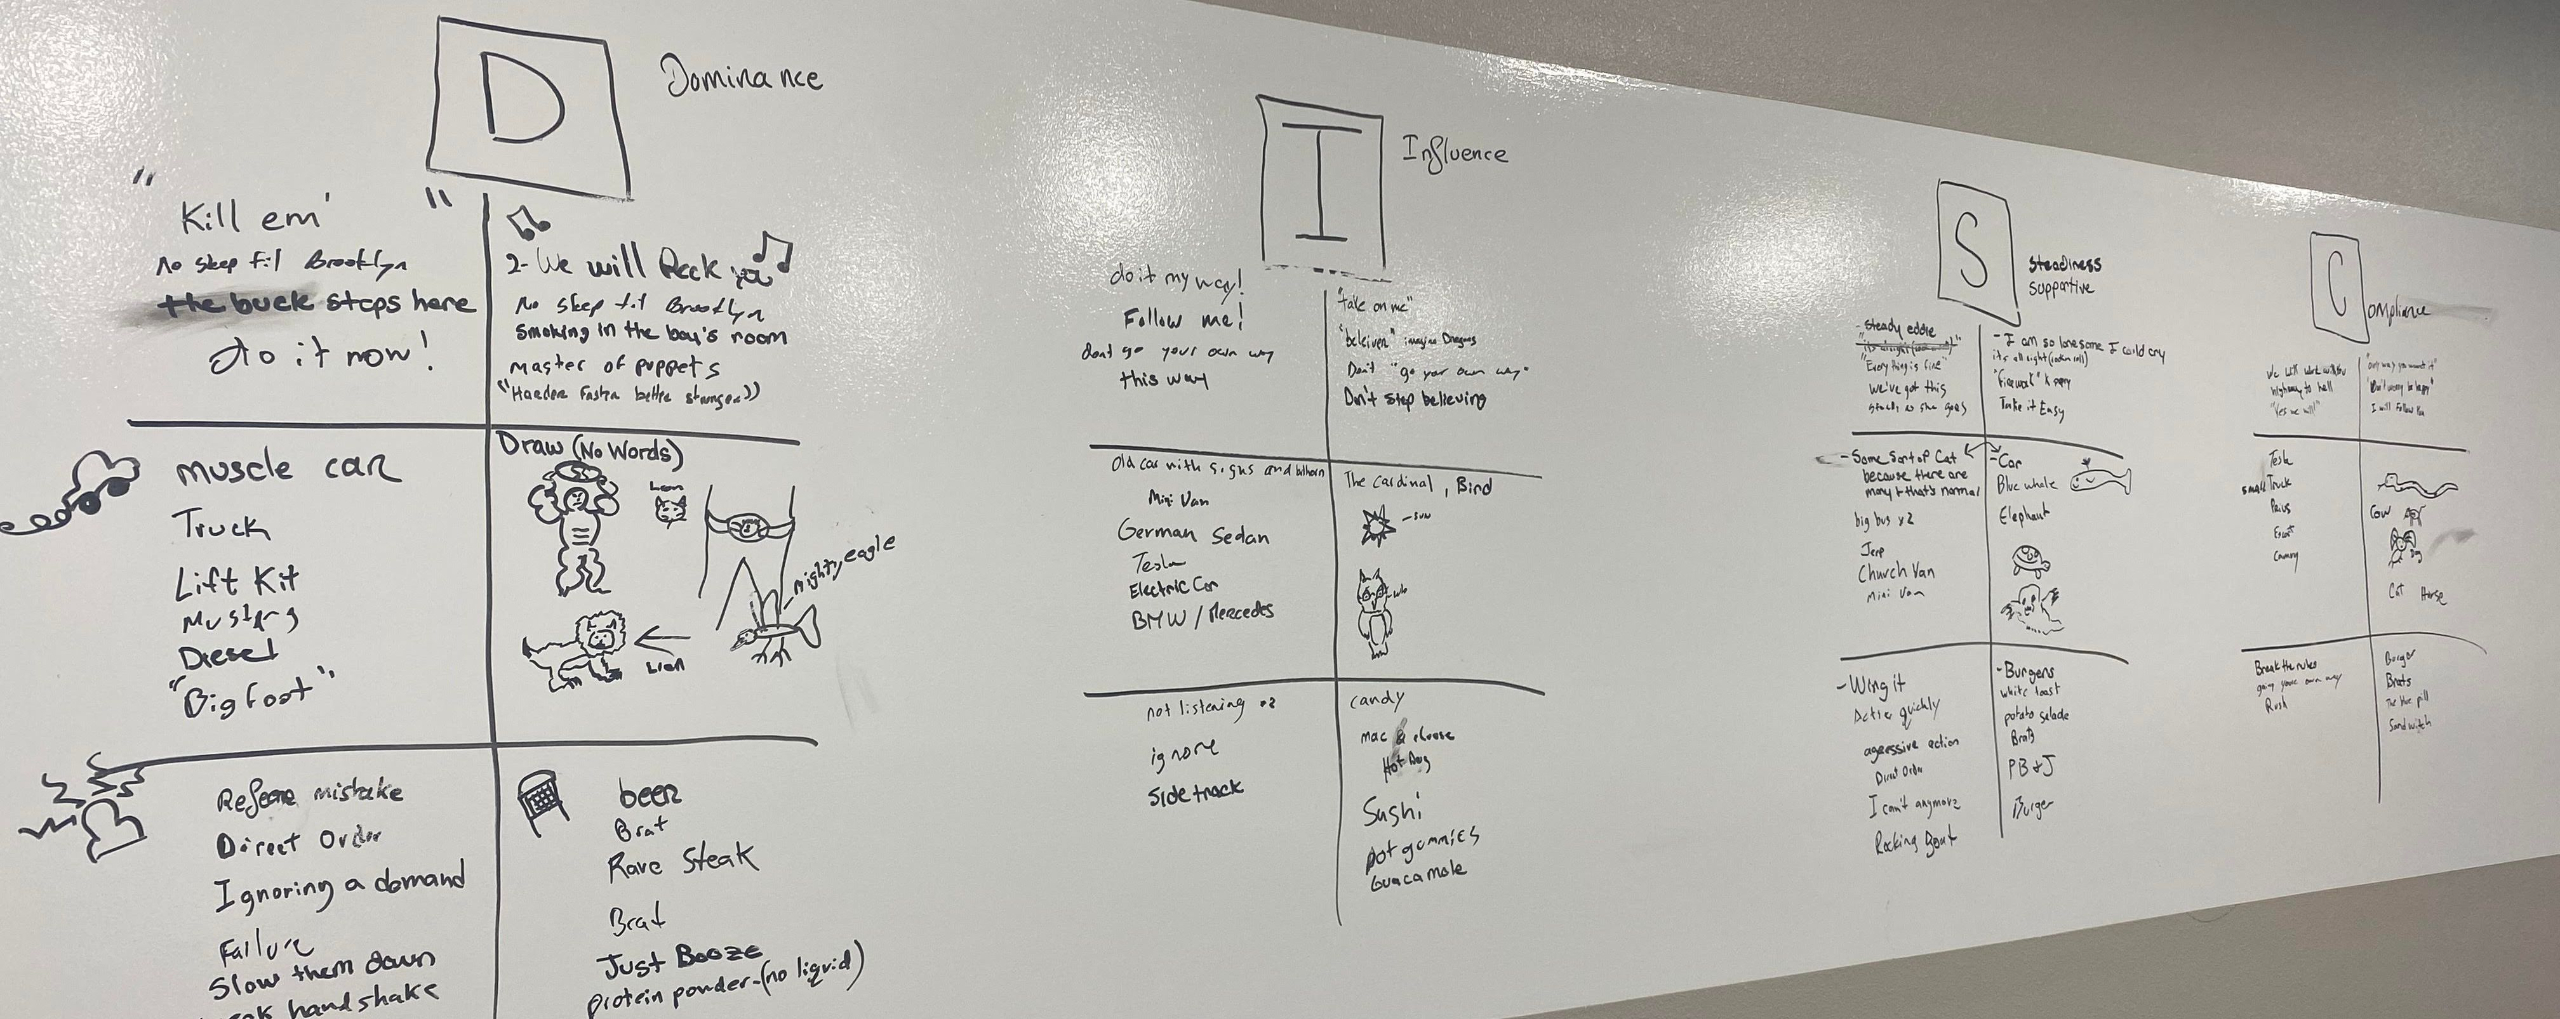 D
Dominance
"Kill em'"
No sleep til Brooklyn
the buck stops here
do it now!
2- We will Rock you
No sleep til Brooklyn
Smoking in the boy's room
master of puppets
"Harder Faster better stronger"
muscle car
Truck
Lift Kit
Mustang
Diesel
"Bigfoot"
Draw (No Words)
Lion
mighty eagle
Lion
mistake
Direct Order
Ignoring a demand
Failure
Slow them down
handshake
beer
Brat
Rare Steak
Brat
Just Booze
protein powder-(no liquid)
I
Influence
do it my way!
Follow me!
dont go your own way
this way
"take on me"
"beleiver" imagine Dragons
Don't "go your own way"
Don't stop believing
Old car with signs and
Mini Van
German Sedan
Tesla
Electric Car
BMW / Mercedes
The Cardinal, Bird
- sun
not listening
ignore
Side track
candy
mac & cheese
Hot Dog
Sushi
pot gummies
Guacamole
S
Steadiness
Supportive
- Steady eddie
"Everything is fine"
we've got this
steady as she goes
- I am so lonesome I could cry
it's all right
"firework" K perry
Take it Easy
- Some sort of Cat
because there are
many & that's normal
big bus x2
Jeep
Church Van
mini van
- Car
Blue whale
Elephant
- Wing it
quickly
agressive action
Direct Order
I can't anymore
Rocking Boat
- Burgers
white toast
potato salade
Brats
PB & J
Burger
Compliance
We will
highway to hell
"Yes we will"
"any way you want it"
"Don't worry be happy"
I will Follow You
Tesla
small Truck
Prius
Escort
Camry
Cow
Dog
Cat Horse
Break the rules
going your own way
Rush
Burger
Brats
The blue pill
Sandwitch